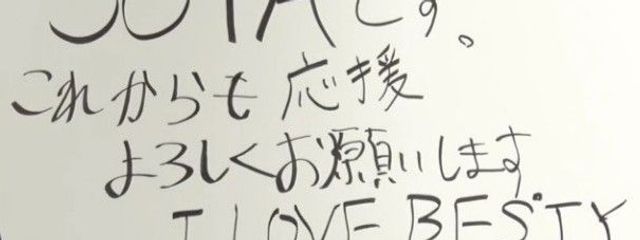 JUTAです。
これからも応援
よろしくお願いします
I LOVE BESTY